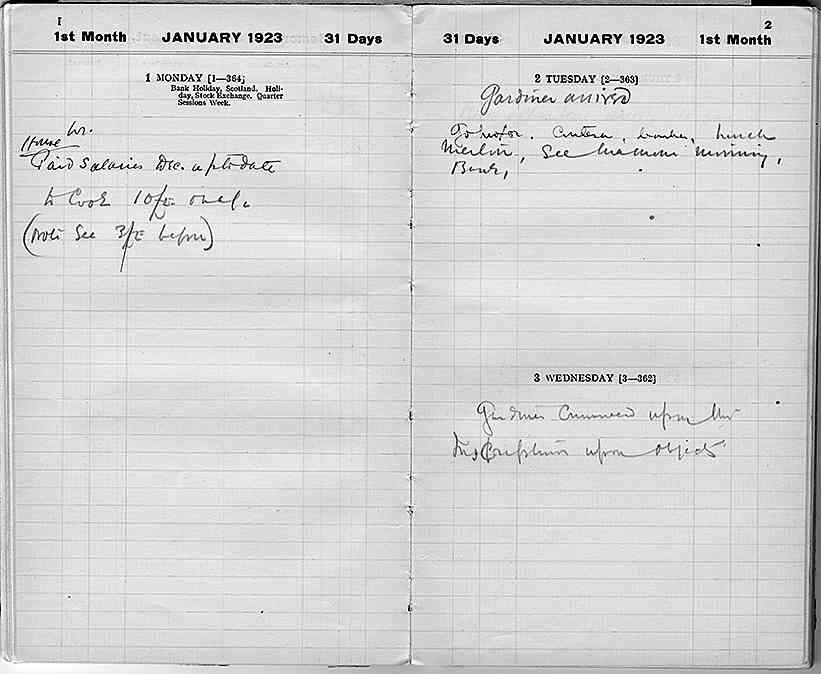 1
1st Month JANUARY 1923 31 Days
1 MONDAY [1—364]
Bank Holiday, Scotland. Holi-
day, Stock Exchange. Quarter
Sessions Week.
House
Paid Salaries Dec. up to date
to Cook
(Note See before)
2
31 Days JANUARY 1923 1st Month
2 TUESDAY [2—363]
Gardiner arrived
lunch
Merton, See morning,
Bank,
3 WEDNESDAY [3—362]
Gardiner Commenced upon the
Inscriptions upon objects